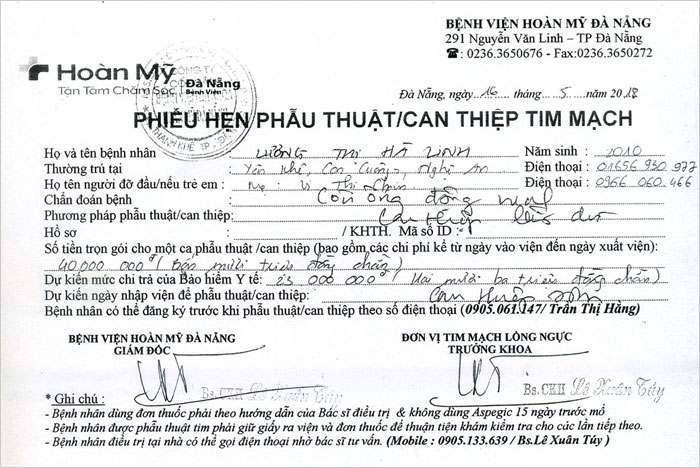 BỆNH VIỆN HOÀN MỸ ĐÀ NẴNG
291 Nguyễn Văn Linh – TP Đà Nẵng
☎: 0236.3650676 - Fax:0236.3650272
Hoàn Mỹ
Đà Nẵng
Tận Tâm Chăm Sóc Bệnh Viện
Đà Nẵng, ngày 16 tháng 5 năm 2018
PHIẾU HẸN PHẪU THUẬT/CAN THIỆP TIM MẠCH
Họ và tên bệnh nhân LƯƠNG THỊ HÀ LINH Năm sinh : 2010
Thường trú tại : Yên Khê, Con Cuông, Nghệ An Điện thoại : 01656 930 977
Họ tên người đỡ đầu/nếu trẻ em : Mẹ: Vi Thị Điện thoại : 0966 060.466
Chẩn đoán bệnh : Còn ống động mạch
Phương pháp phẫu thuật/can thiệp: Can thiệp
Hồ sơ : / KHTH. Mã số ID :
Số tiền trọn gói cho một ca phẫu thuật /can thiệp (bao gồm các chi phí kể từ ngày vào viện đến ngày xuất viện):
40,000 000đ ( Bốn mươi triệu đồng chẵn )
Dự kiến mức chi trả của Bảo hiểm Y tế: 23 000 000đ ( Hai mươi ba triệu đồng chẵn )
Dự kiến ngày nhập viện để phẫu thuật/can thiệp: Can thiệp sớm
Bệnh nhân có thể đăng ký trước khi phẫu thuật/can thiệp theo số điện thoại (0905.061.147/ Trần Thị Hằng)
BỆNH VIỆN HOÀN MỸ ĐÀ NẴNG ĐƠN VỊ TIM MẠCH LỒNG NGỰC
GIÁM ĐỐC TRƯỞNG KHOA
Bs.CKII Lê Xuân Túy Bs.CKII Lê Xuân Túy
* Ghi chú :
- Bệnh nhân dùng đơn thuốc phải theo hướng dẫn của Bác sĩ điều trị & không dùng Aspegic 15 ngày trước mổ
- Bệnh nhân được phẫu thuật tim phải giữ giấy ra viện và đơn thuốc để thuận tiện khám kiểm tra cho các lần tiếp theo.
- Bệnh nhân điều trị tại nhà có thể gọi điện thoại nhờ bác sĩ tư vấn. (Mobile : 0905.133.639 / Bs.Lê Xuân Túy )